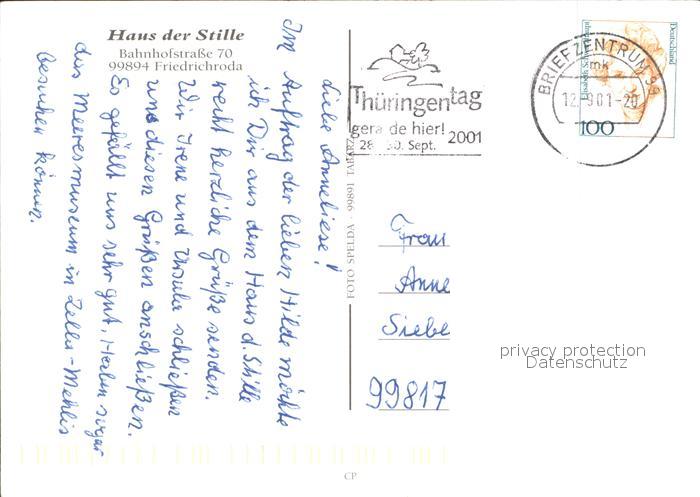 Haus der Stille
Bahnhofstraße 70
99894 Friedrichroda
Liebe Anneliese!
Im Auftrag der lieben Hilde möchte
ich Dir aus dem Haus d. Stille
recht herzliche Grüße senden.
Wir Irene und Ursula schließen
uns diesen Grüßen anschließen.
Es gefällt uns sehr gut, Haben sogar
das Meeresmuseum in Zella-Mehlis
besuchen können.
FOTO SPELDA · 99891 TABARZ
Thüringentag
gera de hier!
28. 30. Sept. 2001
BRIEFZENTRUM 99
mk
12.9.01-20
Deutschland
100
Frau
Anne
Siebe
99817
privacy protection
Datenschutz
CP